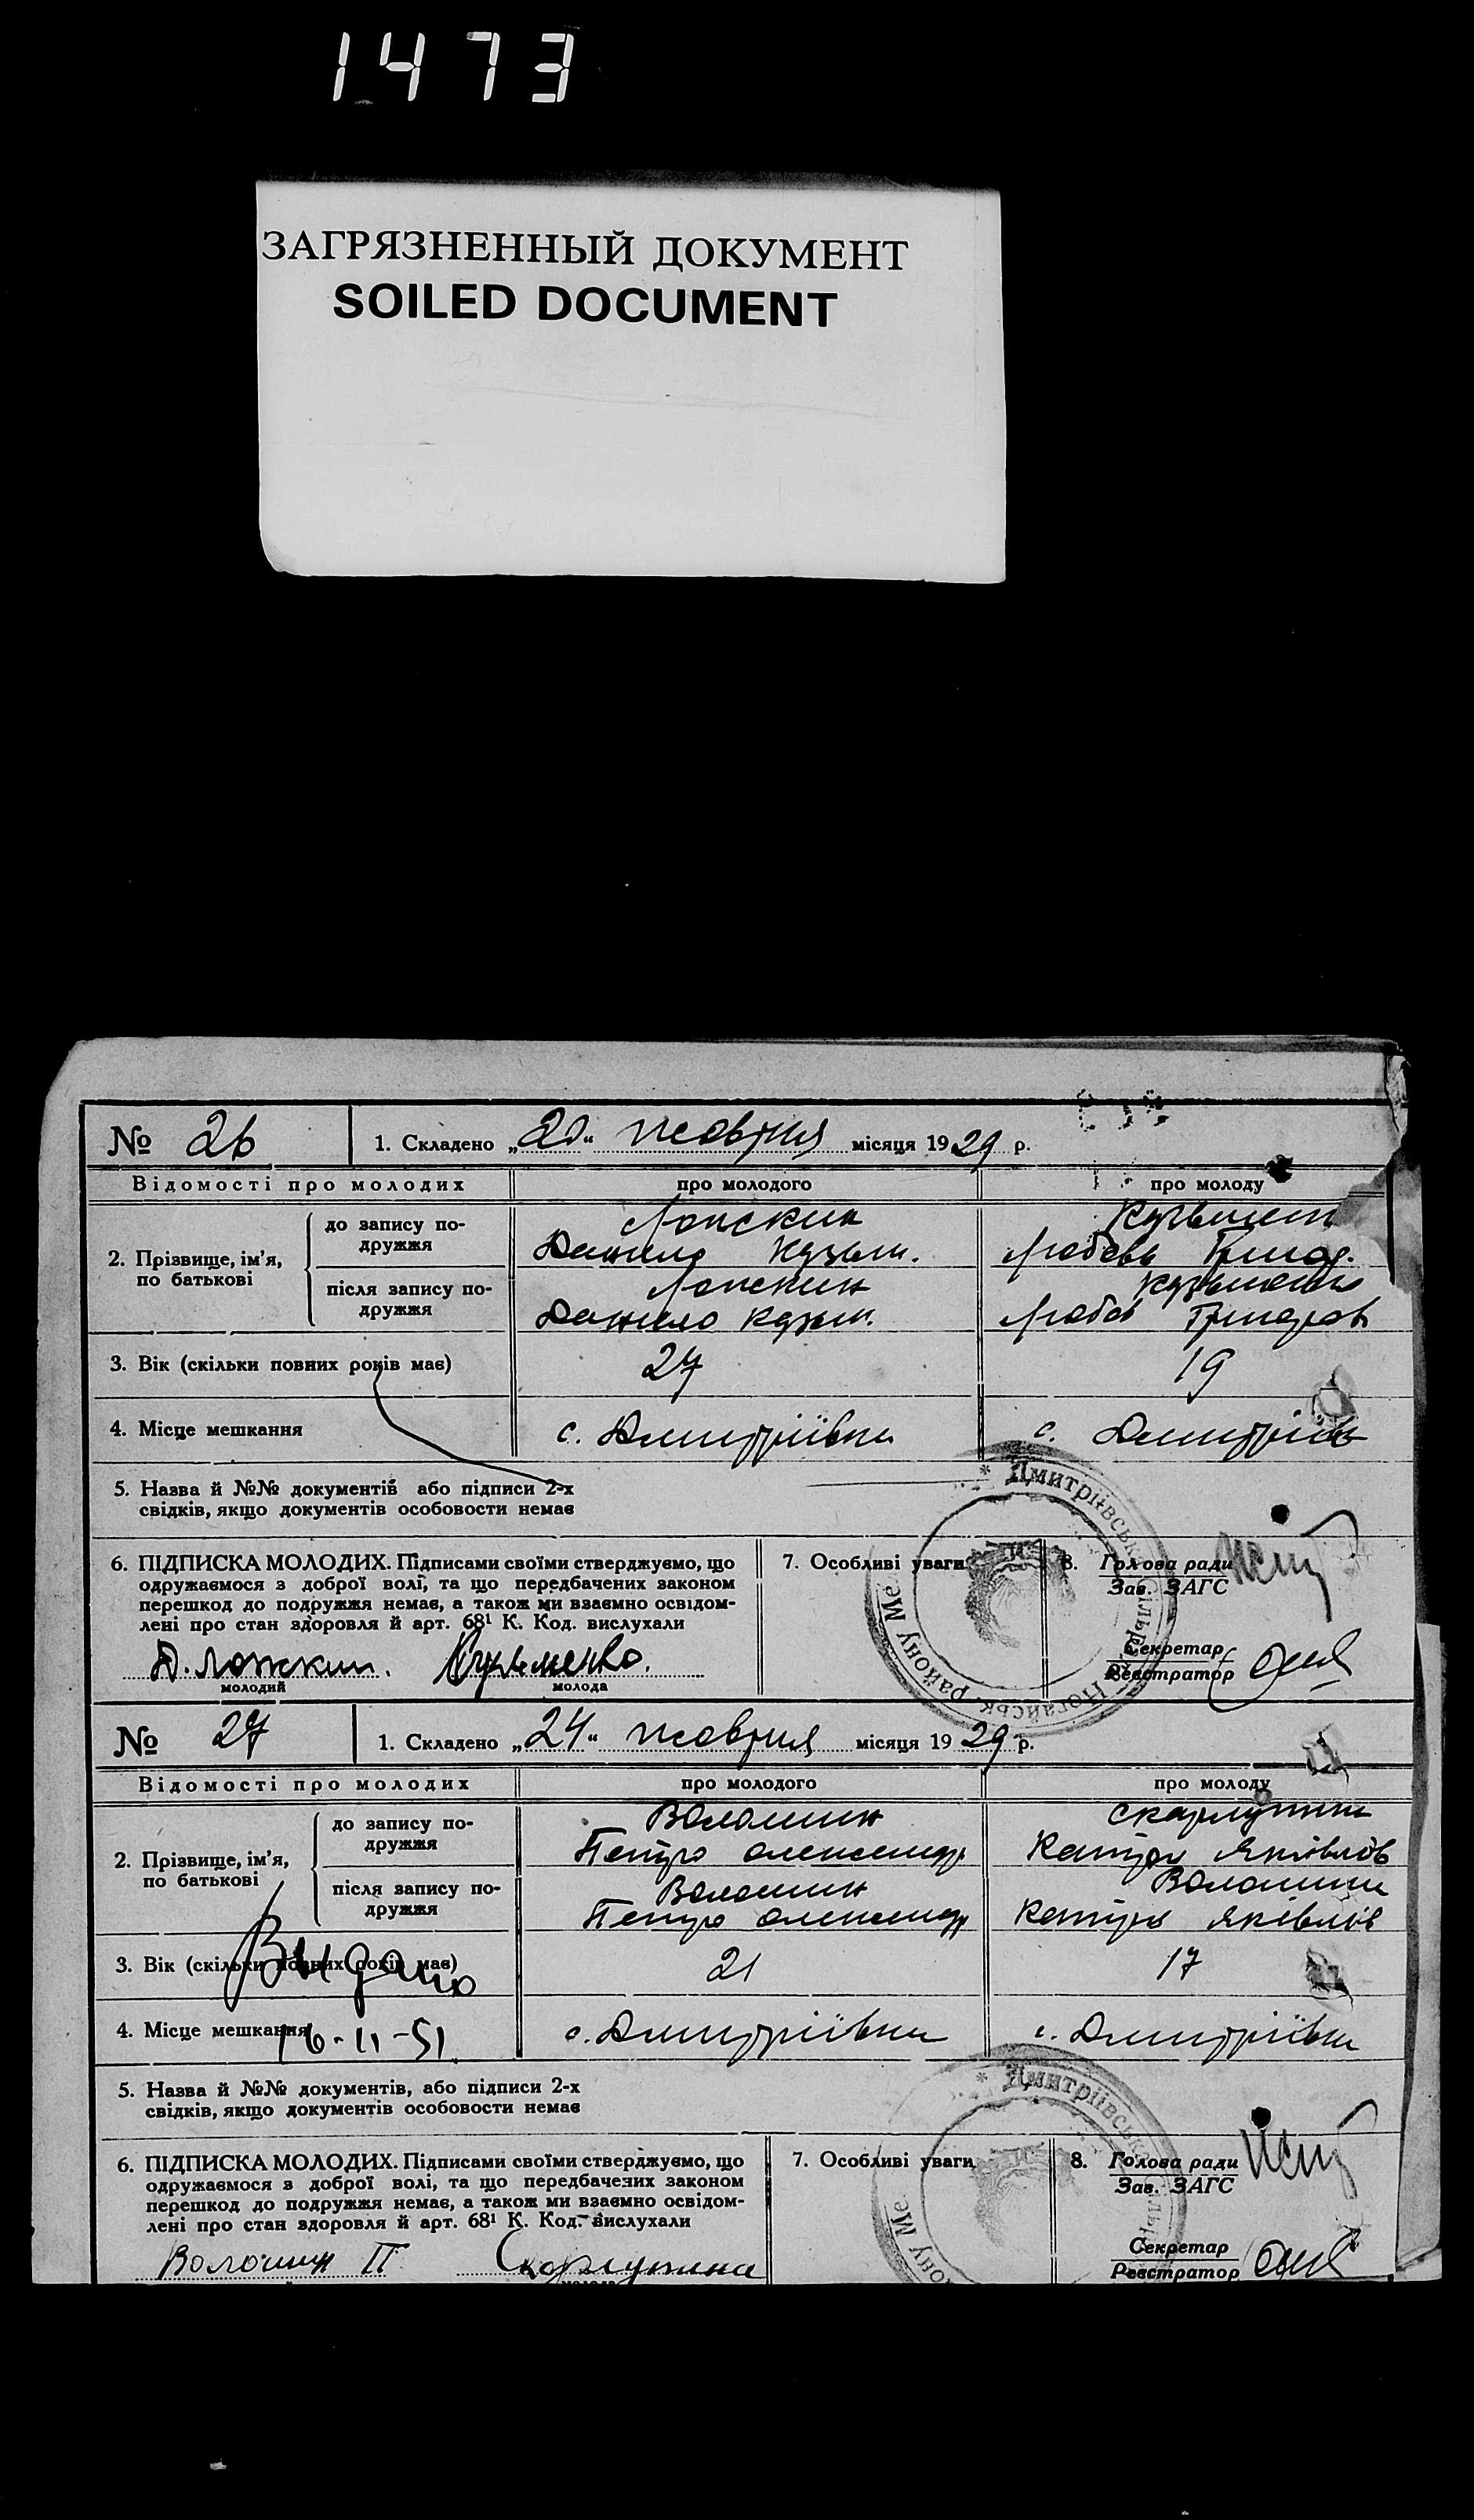 1473
ЗАГРЯЗНЕННЫЙ ДОКУМЕНТ
SOILED DOCUMENT
№ 26
1. Складено „20“ жовтня місяця 1929 р.
Відомості про молодих
про молодого
про молоду
2. Прізвище, ім'я, по батькові
до запису по-
дружжя
Данило Кузьм.
Любовь Григор.
після запису по-
дружжя
Кузьменко
Данило Кузьм.
Любов Григоров
3. Вік (скільки повних років має)
27
19
4. Місце мешкання
с. Дмитріївка
с. Дмитріїв
5. Назва й №№ документів або підписи 2-х
свідків, якщо документів особовости немає
6. ПІДПИСКА МОЛОДИХ. Підписами своїми стверджуємо, що
одружаємося з доброї волі, та що передбачених законом
перешкод до подружжя немає, а також ми взаємно освідом-
лені про стан здоровля й арт. 68¹ К. Код. вислухали
Д. Ложкин. Кузьменко.
молодий
молода
7. Особливі уваги
8. Голова ради
Зав. ЗАГС
Секретар
Реєстратор
* Дмитріївська сільрада Ногайськ. району Ме
№ 27
1. Складено „24“ жовтня місяця 1929 р.
Відомості про молодих
про молодого
про молоду
2. Прізвище, ім'я,
по батькові
до запису по-
дружжя
Волошин
Петро Олександр
Катря Яківлів
після запису по-
дружжя
Волошин
Волошина
Петро Олександр
Катря Яківлів
3. Вік (скільки повних років має)
21
17
Выдано
4. Місце мешкання
16-11-51
с. Дмитріївка
с. Дмитріївка
5. Назва й №№ документів, або підписи 2-х
свідків, якщо документів особовости немає
6. ПІДПИСКА МОЛОДИХ. Підписами своїми стверджуємо, що
одружаємося з доброї волі, та що передбачених законом
перешкод до подружжя немає, а також ми взаємно освідом-
лені про стан здоровля й арт. 68¹ К. Код. вислухали
Волошин П
7. Особливі уваги
8. Голова ради
Зав. ЗАГС
Секретар
Реєстратор
* Дмитріївська